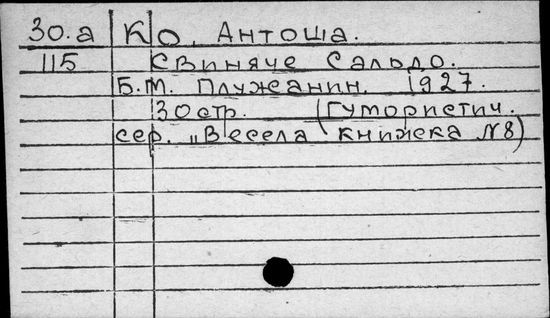 30.а Ко, Антоша.
115 Свиняче Сальдо.
Б.М. Плужанин. 1927.
30 стр. (Гумористич.
сер. „Весела книжека №8)